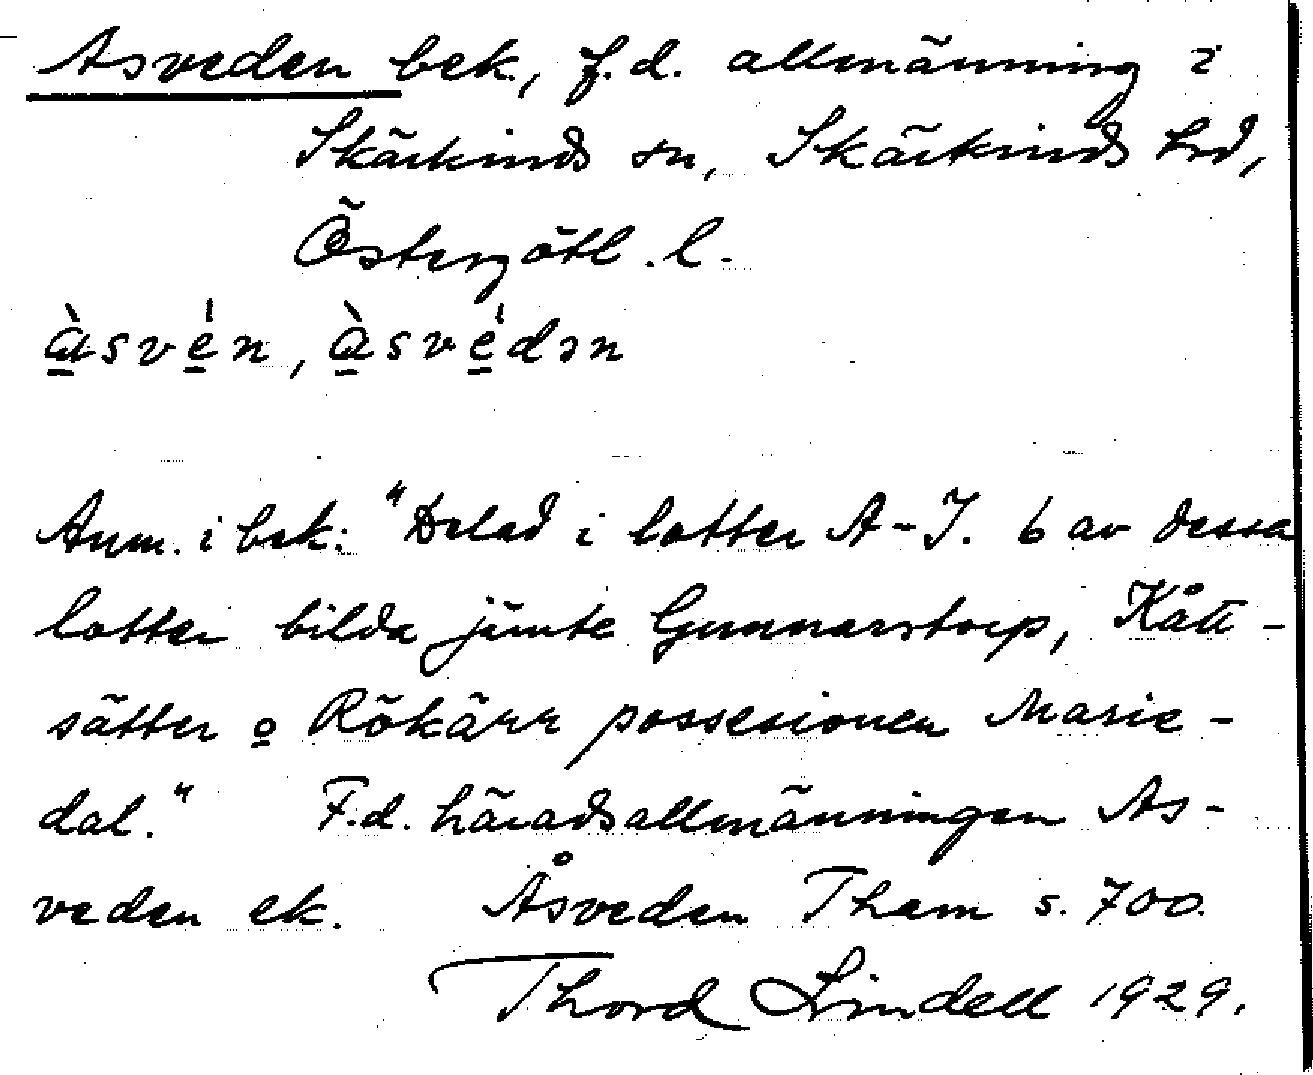 Asveden bek., f.d. allmänning i
Skärkinds sn, Skärkinds hd,
Östergötl. l.
àsvén, àsvédən
Anm. i bek: "Delad i lotter A-J. 6 av dessa
lotter bilda jämte Gunnarstorp, Kått-
sätter o Rökärr possesionen Marie-
dal." F.d. häradsallmänningen As-
veden ek. Åsveden Tham s. 700.
Thord Lindell 1929.